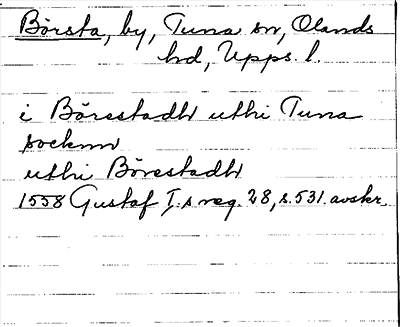 Börsta, by, Tuna sn, Olands
hd, Upps. l.
i Börestadh uthi Tuna
socknn
uthi Börestadh
1558 Gustaf I.s reg. 28, s. 531. avskr.